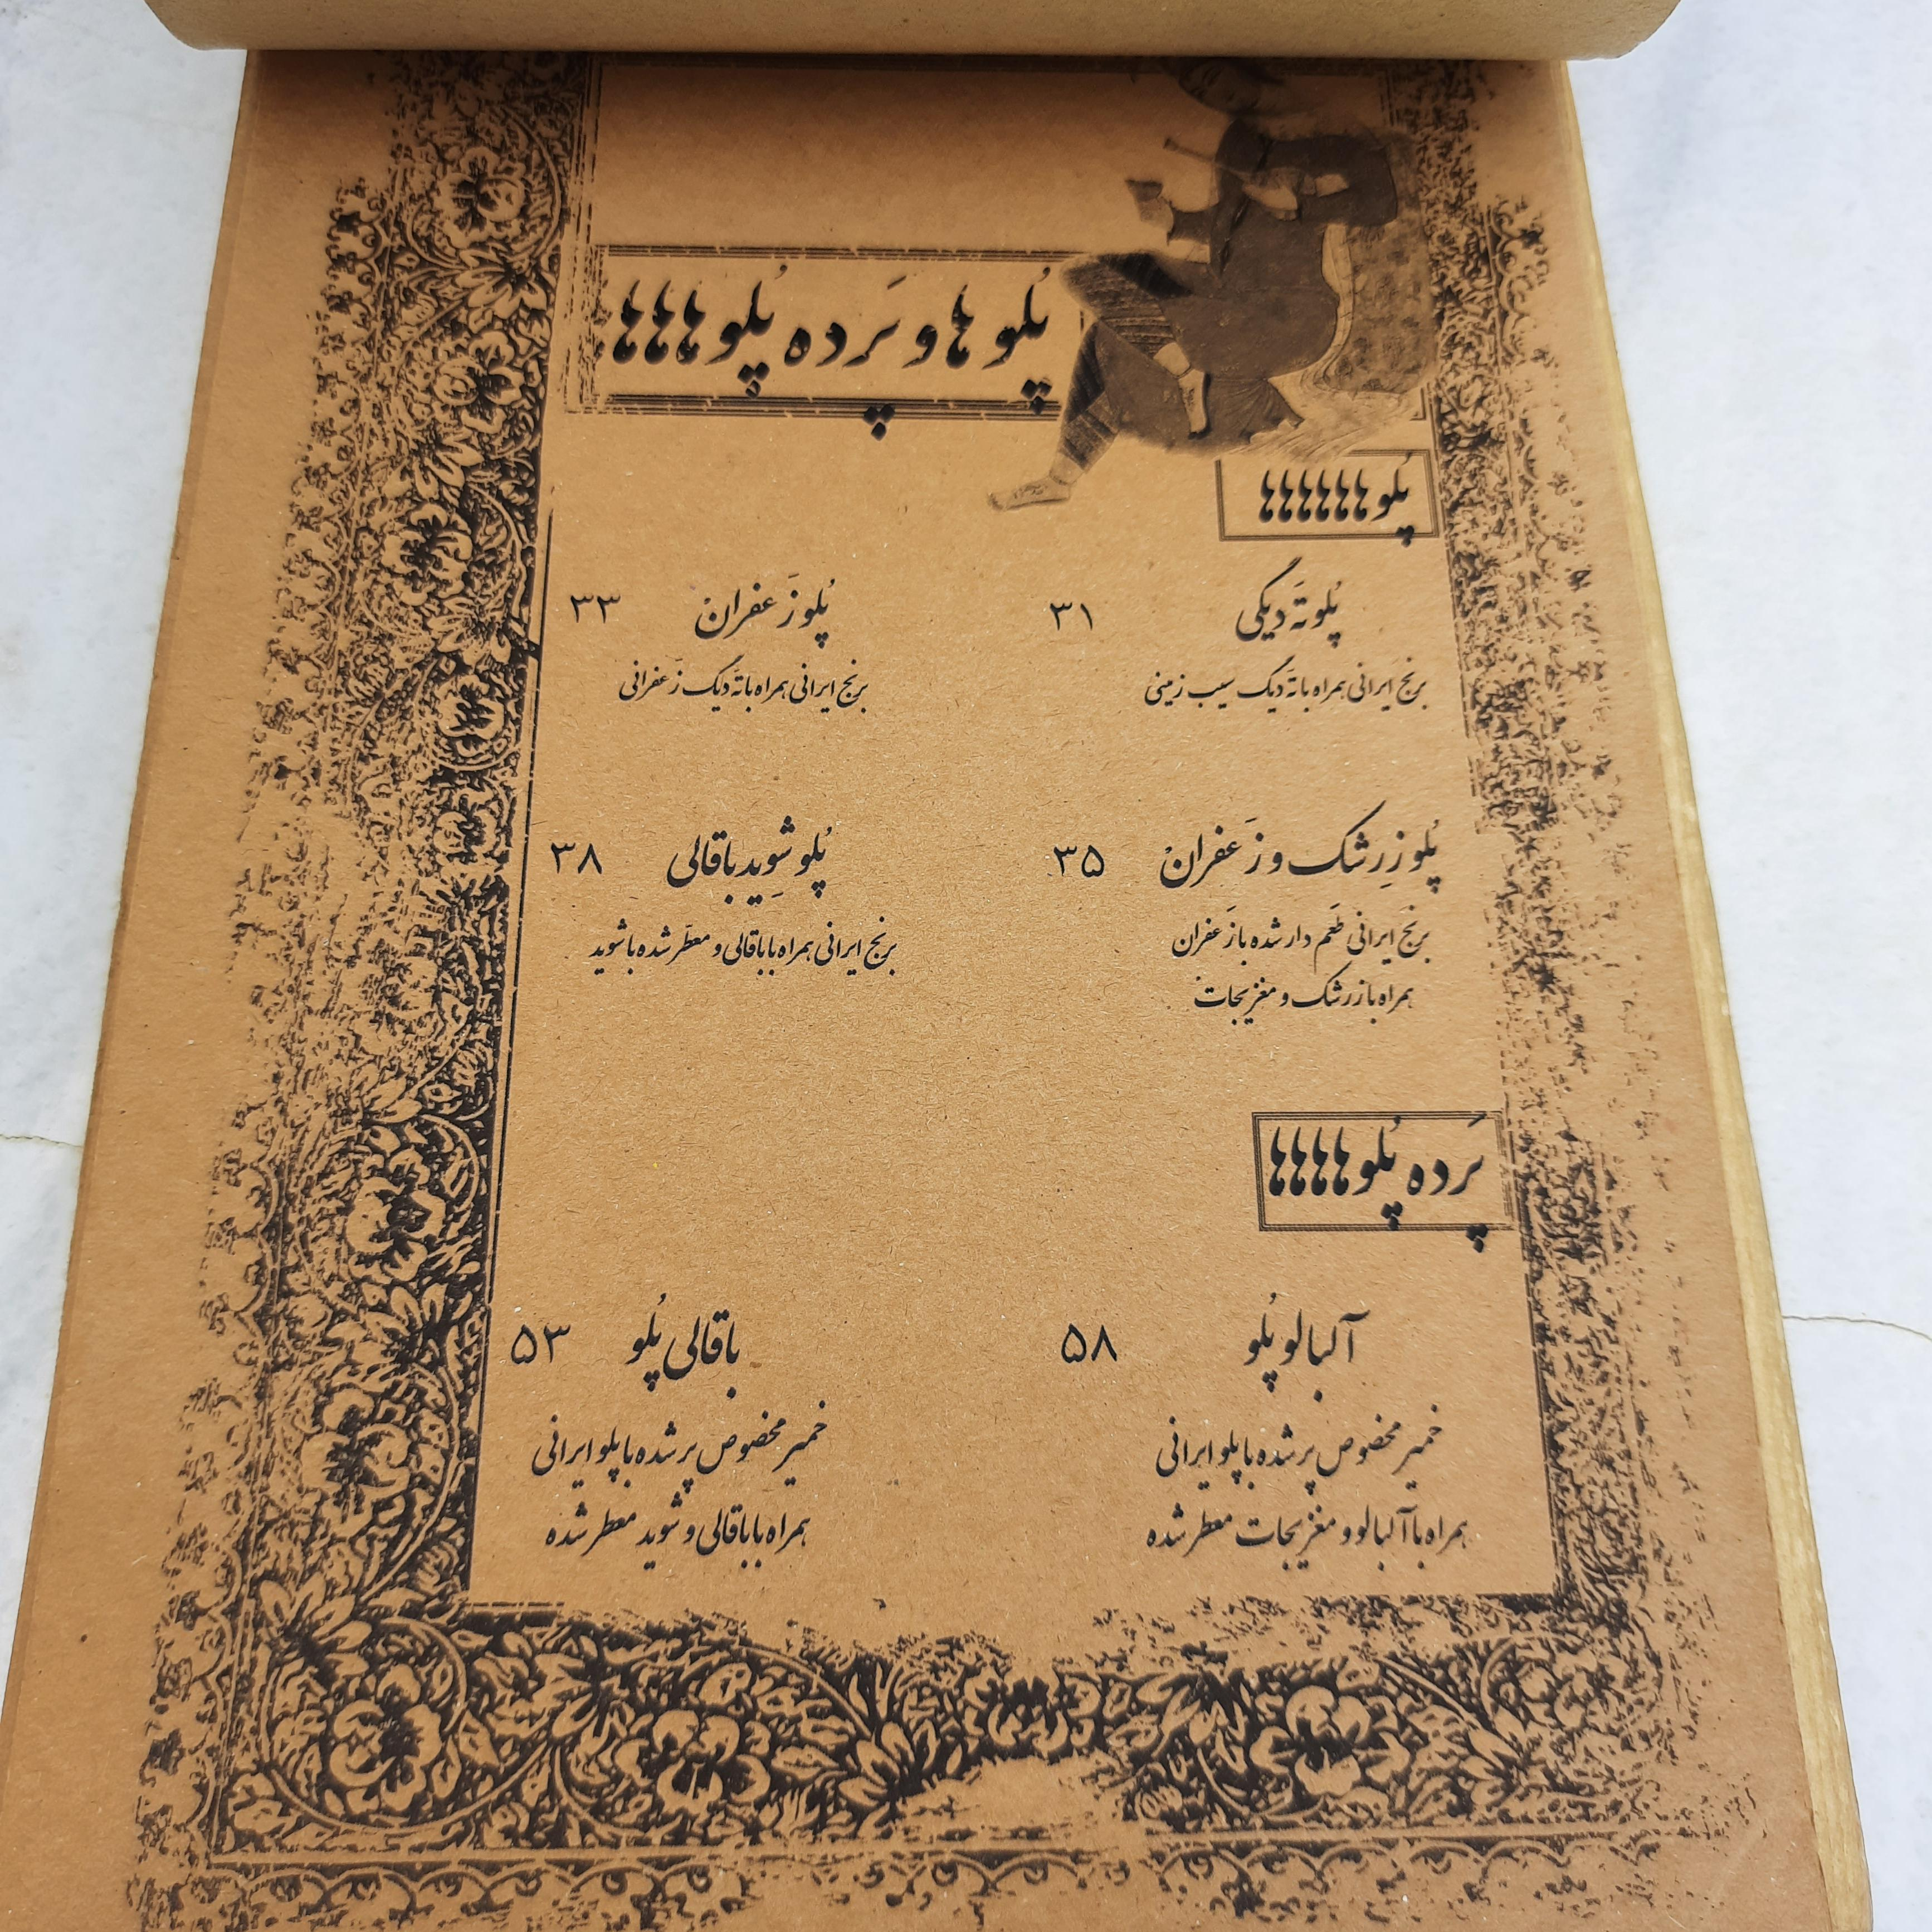 پُلو ها و پَرده پُلو هاااا
پُلو هااااااا
پُلو تَه دیگی ۳۱
برنج ایرانی همراه با تَه دیگ سیب زمینی
پُلو زَعفران ۳۳
برنج ایرانی همراه با تَه دیگ زَعفرانی
پُلو زِرشک و زَعفران ۳۵
برنج ایرانی طَعم دار شده با زَعفران
همراه با زرشک و مغزیجات
پُلو شِوید باقالی ۳۸
برنج ایرانی همراه با باقالی و معطّر شده با شوید
پَرده پُلو هااااا
آلبالو پُلو ۵۸
خمیر مخصوص پر شده با پلو ایرانی
همراه با آلبالو و مغزیجات معطر شده
باقالی پُلو ۵۳
خمیر مخصوص پر شده با پلو ایرانی
همراه با باقالی و شوید معطر شده